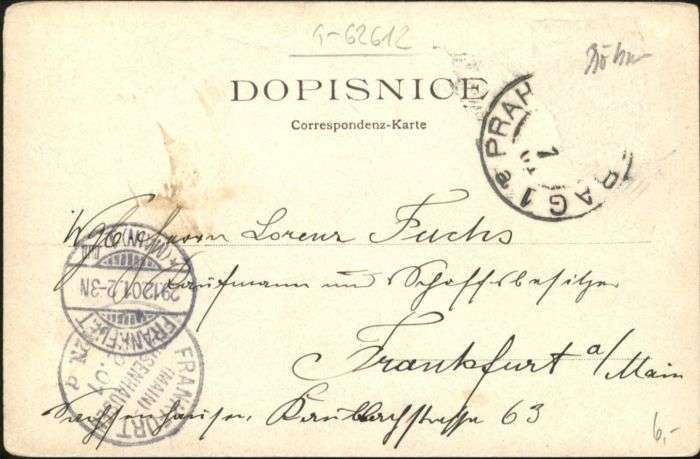 G-62612
Böhm
DOPISNICE
Correspondenz-Karte
PRAHA
PRAG 1
Herrn Lorenz Fuchs
Kaufmann und Schoffsbesitzer
Frankfurt a/Main
Sachsenhausen, Kaulbachstrasse 63
29.12.01.2-3N
FRANKFURT
(MAIN)
FRANKFURT
(MAIN)
SACHSENHAUSEN
6,-